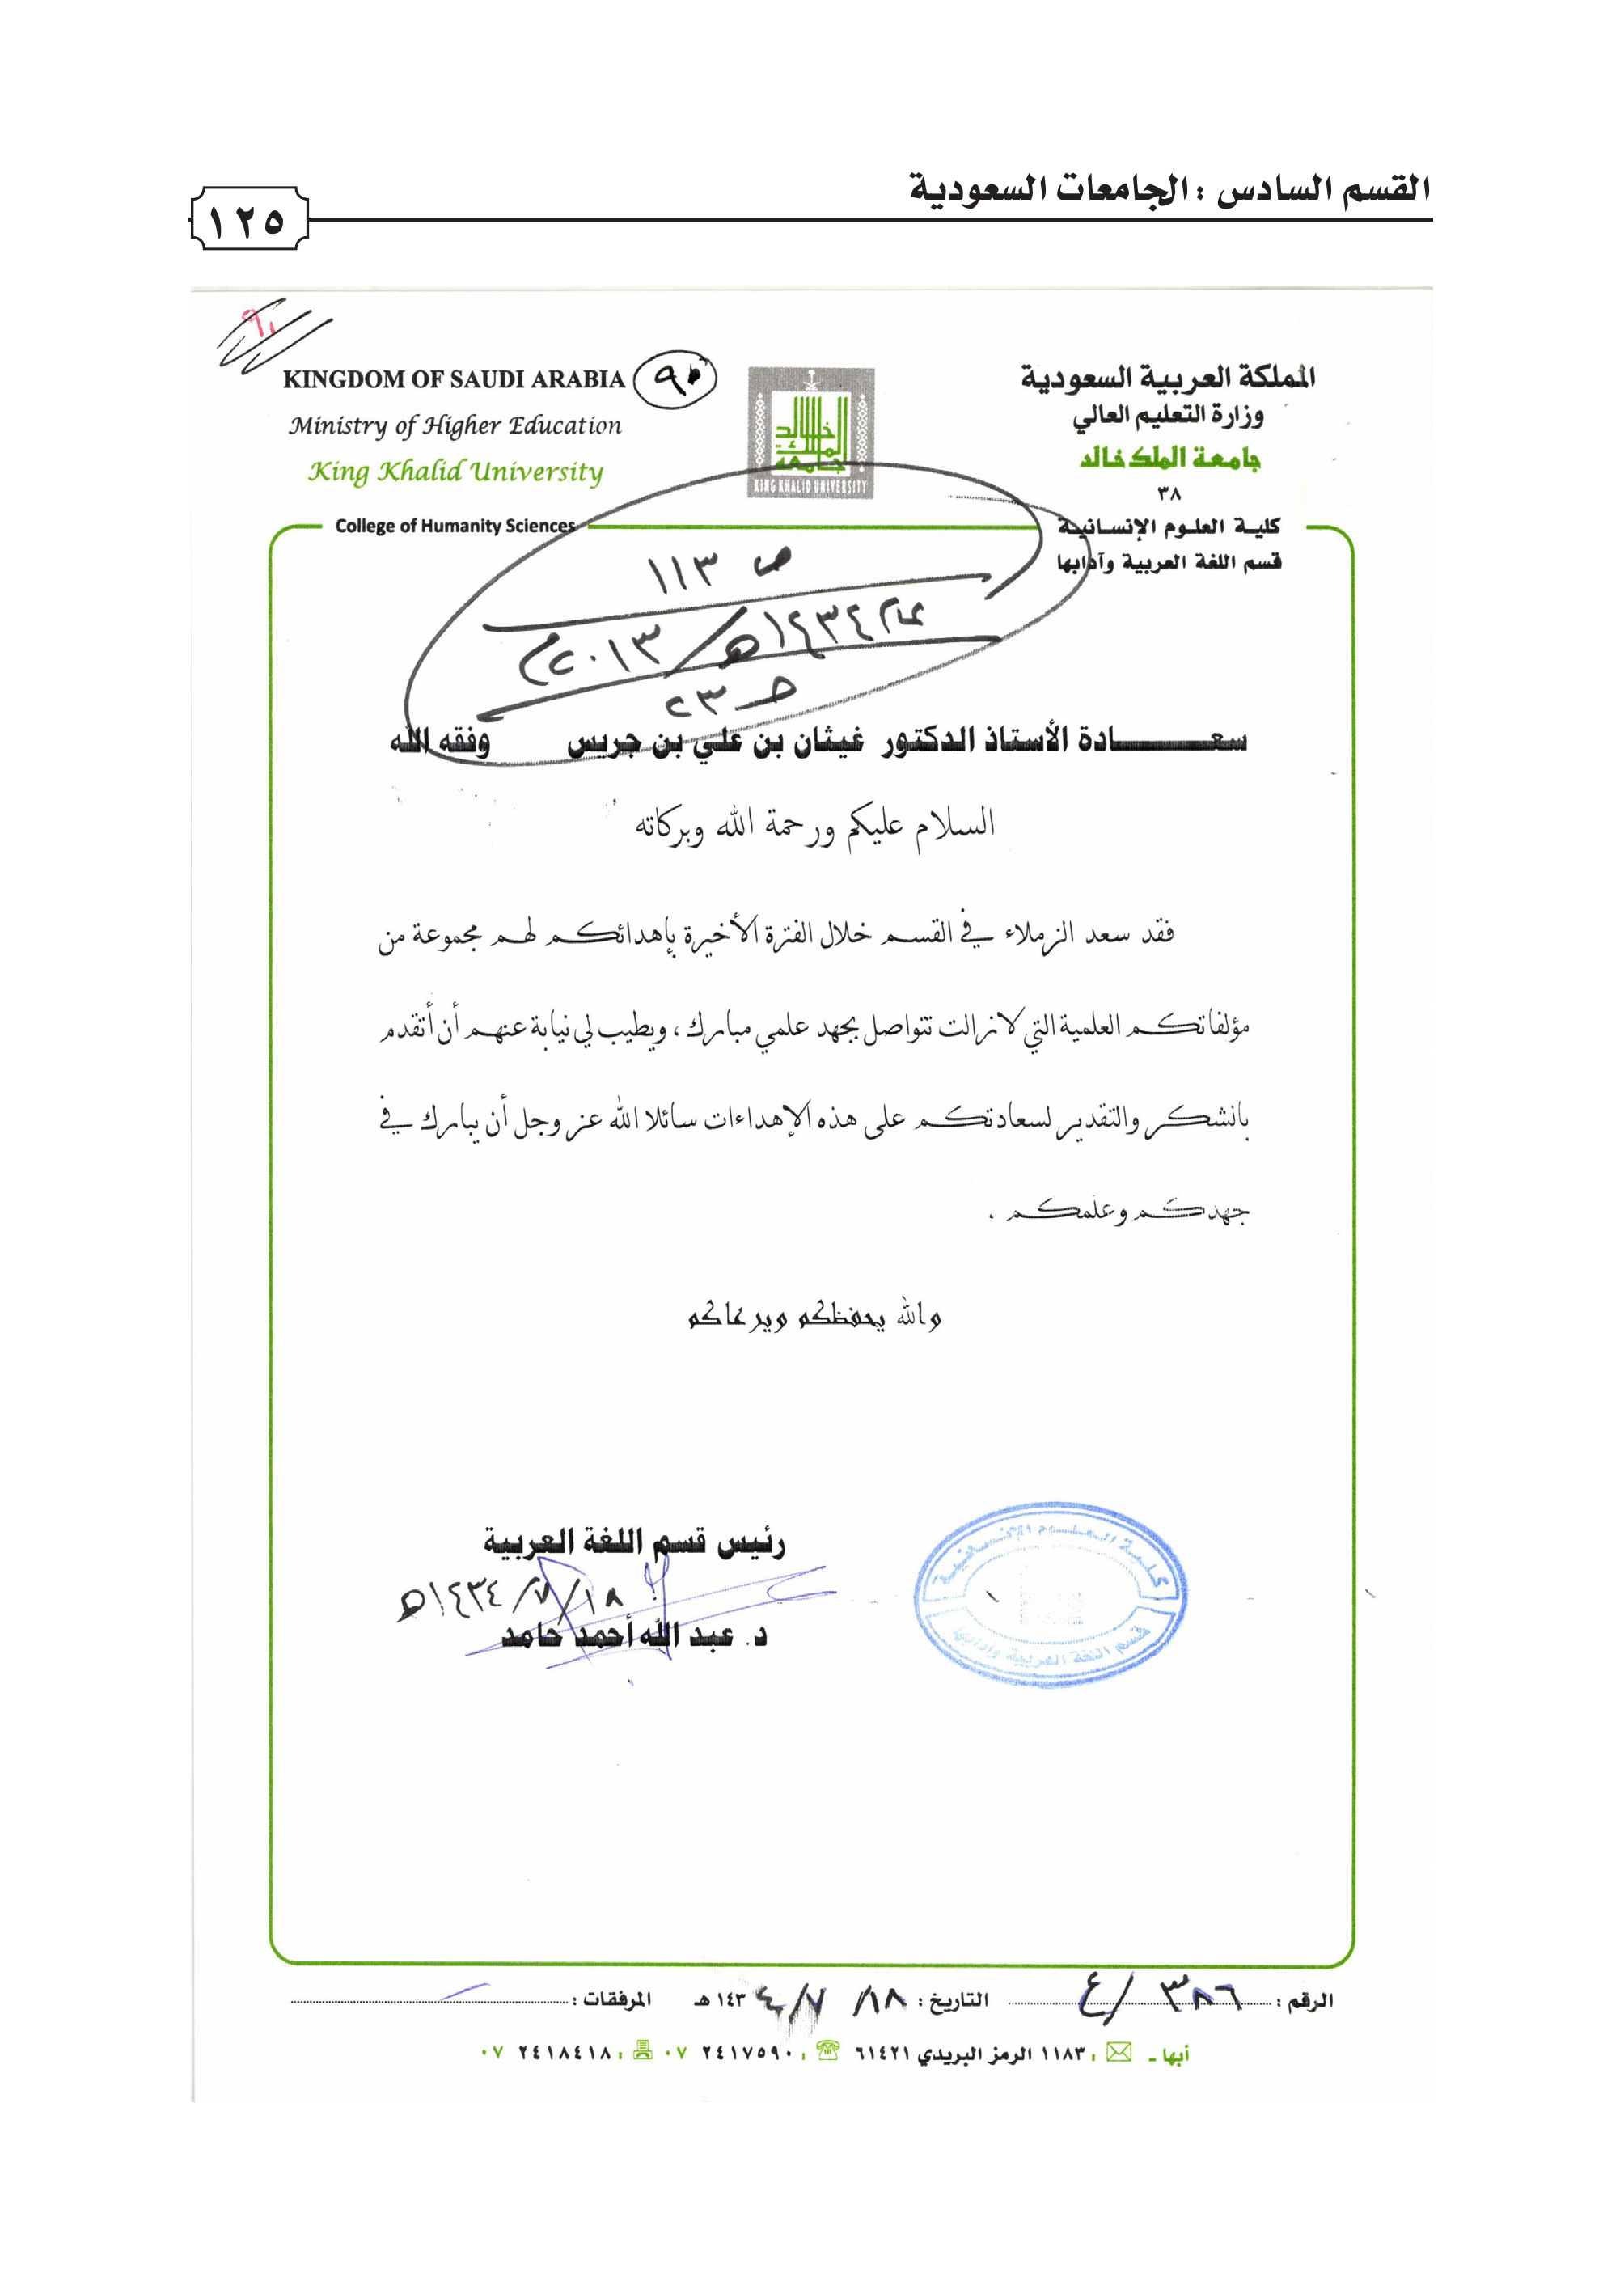 القسم السادس : الجامعات السعودية
١٢٥
KINGDOM OF SAUDI ARABIA
Ministry of Higher Education
King Khalid University
College of Humanity Sciences
KING KHALID UNIVERSITY
المملكة العربية السعودية
وزارة التعليم العالي
جامعة الملك خالد
٣٨
كلية العلوم الإنسانية
قسم اللغة العربية وآدابها
ص ١١٣
عام ١٤٣٤هـ/٢٠١٣م
حـ ٢٣
سعـــادة الأستاذ الدكتور غيثان بن علي بن جريس وفقه الله
السلام عليكم ورحمة الله وبركاته
فقد سعد الزملاء في القسم خلال الفترة الأخيرة بإهدائكم لهم مجموعة من
مؤلفاتكم العلمية التي لا زالت تتواصل بجهد علمي مبارك ، ويطيب لي نيابة عنهم أن أتقدم
بالشكر والتقدير لسعادتكم على هذه الإهداءات سائلا الله عز وجل أن يبارك في
جهدكم وعلمكم .
والله يحفظكم ويرعاكم
رئيس قسم اللغة العربية
١٨/٧/١٤٣٤هـ
د. عبد الله أحمد حامد
كلية العلوم الإنسانية
قسم اللغة العربية وآدابها
الرقم : ٣٨٦/٤ التاريخ : ١٨/٧/١٤٣٤ هـ المرفقات :
أبها - : ١١٨٣ الرمز البريدي ٦١٤٢١ : ٢٤١٧٥٩٠ ٠٧ : ٢٤١٨٤١٨ ٠٧